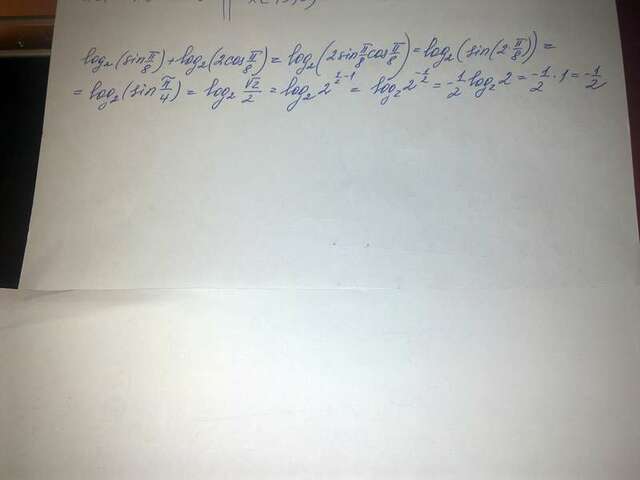 log₂(sin π/8) + log₂(2cos π/8) = log₂(2sin π/8 cos π/8) = log₂(sin(2·π/8)) =
= log₂(sin π/4) = log₂ √2/2 = log₂ 2^(1/2-1) = log₂ 2^(-1/2) = -1/2 log₂ 2 = -1/2 · 1 = -1/2